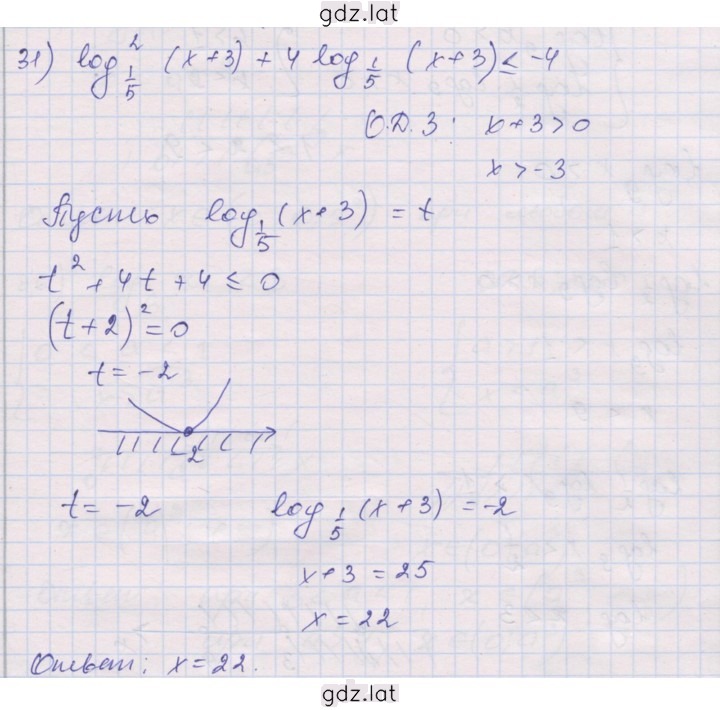 gdz.lat
31) log²_{1/5} (x+3) + 4 log_{1/5} (x+3) ≤ -4
О.Д.З: x+3>0
x>-3
Пусть log_{1/5} (x+3) = t
t² + 4t + 4 ≤ 0
(t+2)² = 0
t = -2
-2
t = -2 log_{1/5} (x+3) = -2
x+3 = 25
x = 22
Ответ: x = 22.
gdz.lat